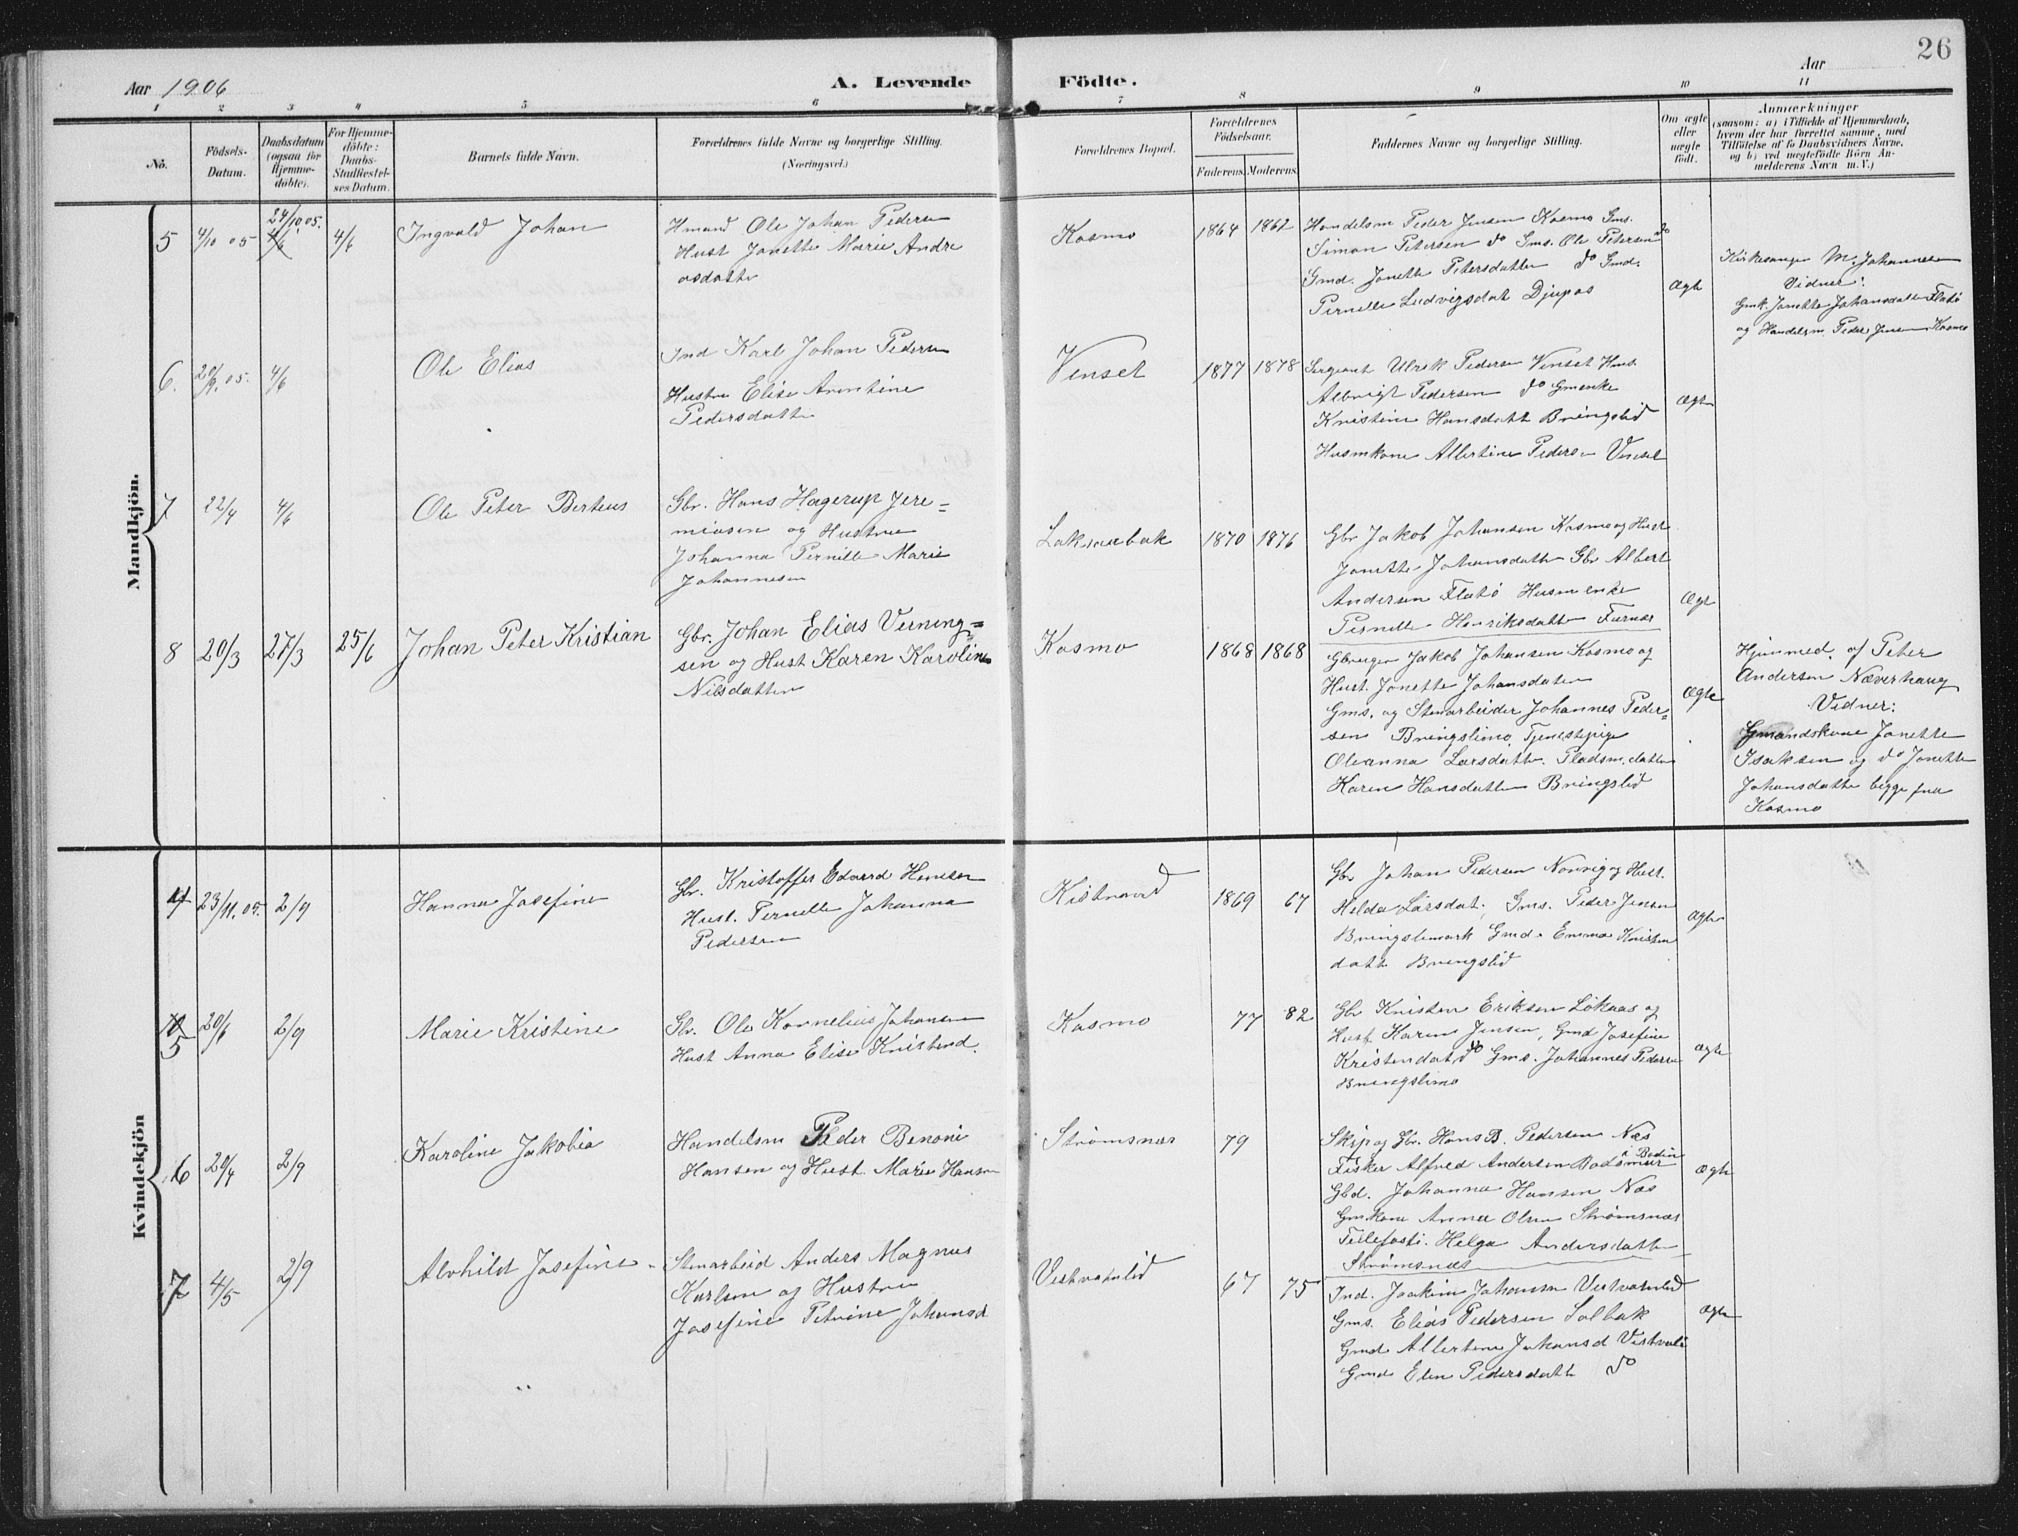 26
Aar 1906
A. Levende Födte.
Aar
1 2 3 4 5 6 7 8 9 10 11
No.
Födsels-
Datum.
Daabsdatum
(ogsaa for
Hjemme-
döbte).
For Hjemme-
döbte:
Daabs-
Stadfæstel-
ses Datum.
Barnets fulde Navn.
Forældrenes fulde Navne og borgerlige Stilling.
(Næringsvei.)
Forældrenes Bopæl.
Forældrenes
Födselsaar.
Faderens.
Moderens.
Faddernes Navne og borgerlige Stilling.
Om ægte
eller
uægte
födt.
Anmærkninger
(saasom: a) i Tilfælde af Hjemmedaab,
hvem der har forrettet samme, med
Tilföielse af to Daabsvidners Navne,
og b) ved uægtefödte Börn An-
melderens Navn m. V.)
Mandkjön.
5 4/10 05 24/10.05. 4/6 4/6 Ingvald Johan
Hmand Ole Johan Pedersen
Hust Jonette Marie Andre
asdatte
Kosmo 1864 1862
Handelsm Peder Jensen Kosmo Gms.
Simon Petersen do Gms. Ole Petersen do
Gmd. Jonette Petersdatter do Gmd.
Pernille Ludvigsdat Djupos
Ægte
Kirkesanger M. Johannesen
Vidner:
Gmk. Jonette Johansdatte Flatö
og Handelsm. Peder Jensen Kosmo
6. 20/9. 05. 4/6 Ole Elias
Ind Karl Johan Pedersen
Hustru Elise Arntine
Pedersdatte
Venset 1877 1878
Sergeant Ulrik Pedersen Venset Hms.
Albrigt Pedersen do Gmenke
Kristine Hansdatt Bringslid
Husmkone Albertine Pedersen Venset
Ægte
7 22/4 4/6 Ole Peter Berteus
Gbr. Hans Hagerup Jere=
miasen og Hustru
Johanna Pernille Marie
Johannesen
Laksaabak 1870 1876
Gbr Jakob Johansen Kosmo og Hust
Jonette Johansdatte Gbr Albert
Andersen Flatö Husmenke
Pernille Henriksdatte Furnæs
Ægte
8 20/3 27/3 25/6 Johan Peter Kristian
Gbr. Johan Elias Verning=
sen og Hust Karen Karoline
Nilsdatter
Kosmo 1868 1868
Gbruger Jakob Johansen Kosmo og
Hust. Jonette Johansdater
Gms. og Stenarbeider Johannes Peder=
sen Bringslimo, Tjenestpige
Oleanna Larsdatte. Pladsm.datter
Karen Hansdatter Bringslid
Ægte
Hjemmed. af Peter
Andersen Næverhaug
Vidner:
Gmandskone Jonette
Isaksen og do Jonette
Johansdatte begge fra
Kosmo
Kvindekjön
4 23/11. 05. 2/9 Hanna Josefine
Gbr. Kristoffer Edvard Hansen
Hust. Pernille Johanna
Pedersen
1869 67
Gbr Johan Pedersen og Hust.
Helda Larsdat, Gms. Peder Jensen
Bringslimark Gmd. Emma Kristen
datt Bringslid
Ægte
5 20/6 2/9 Marie Kristine
Gbr. Ole Kornelius Johansen
Hust Anna Elise Kristend.
Kosmo 77 82
Gbr Kristen Eriksen Lökaas og
Hust. Karen Jensen, Gmd Josefine
Kristendat do Gms. Johannes Pedersen
Bringslimo
Ægte
6 20/4 2/9 Karoline Jakobia
Handelsm Peder Benoni
Hansen og Hust Marie Hansen
Strømsnæs 79
Skip og Gbr. Hans B. Pedersen Næs
Fisker Alfred Andersen i Bodin
Gbd. Johanna Hansen Næs
Gmkone Anna Olsen Strømsnæs
Helga Andersdatte
Strømsnæs
Ægte
7 4/5 2/9 Alvhild Josefine
Stenarbeid Anders Magnus
Karlsen og Hustru
Josefine Petrine Johansd
Vestvatnlid 67 75
Ind. Joakim Johansen Vestvatnlid
Gms. Elias Pedersen Solbak
Gmd Albertine Johansd Vestvatli
Gmd Elen Pedersdatt do
Ægte